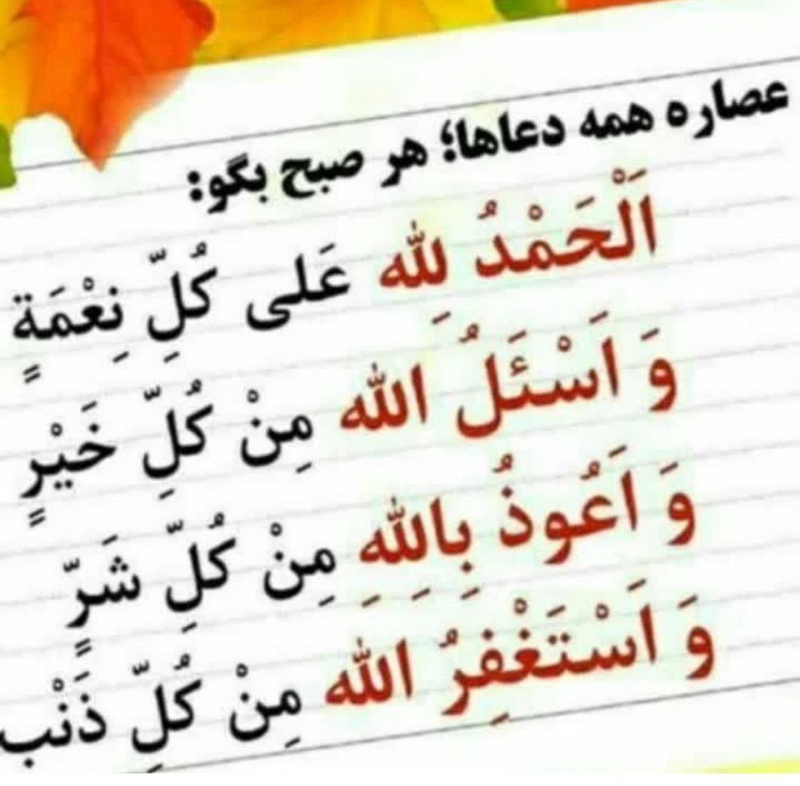 عصاره همه دعاها؛ هر صبح بگو:
اَلْحَمْدُ لِلهِ عَلی کُلِّ نِعْمَةٍ
وَ اَسْئَلُ الله مِنْ کُلِّ خَیْرٍ
وَ اَعُوذُ بِاللهِ مِنْ کُلِّ شَرٍّ
وَ اَسْتَغْفِرُ الله مِنْ کُلِّ ذَنْب